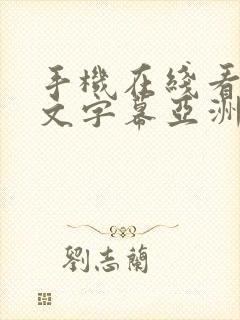 手機在綫看
文字幕亞洲
劉志蘭